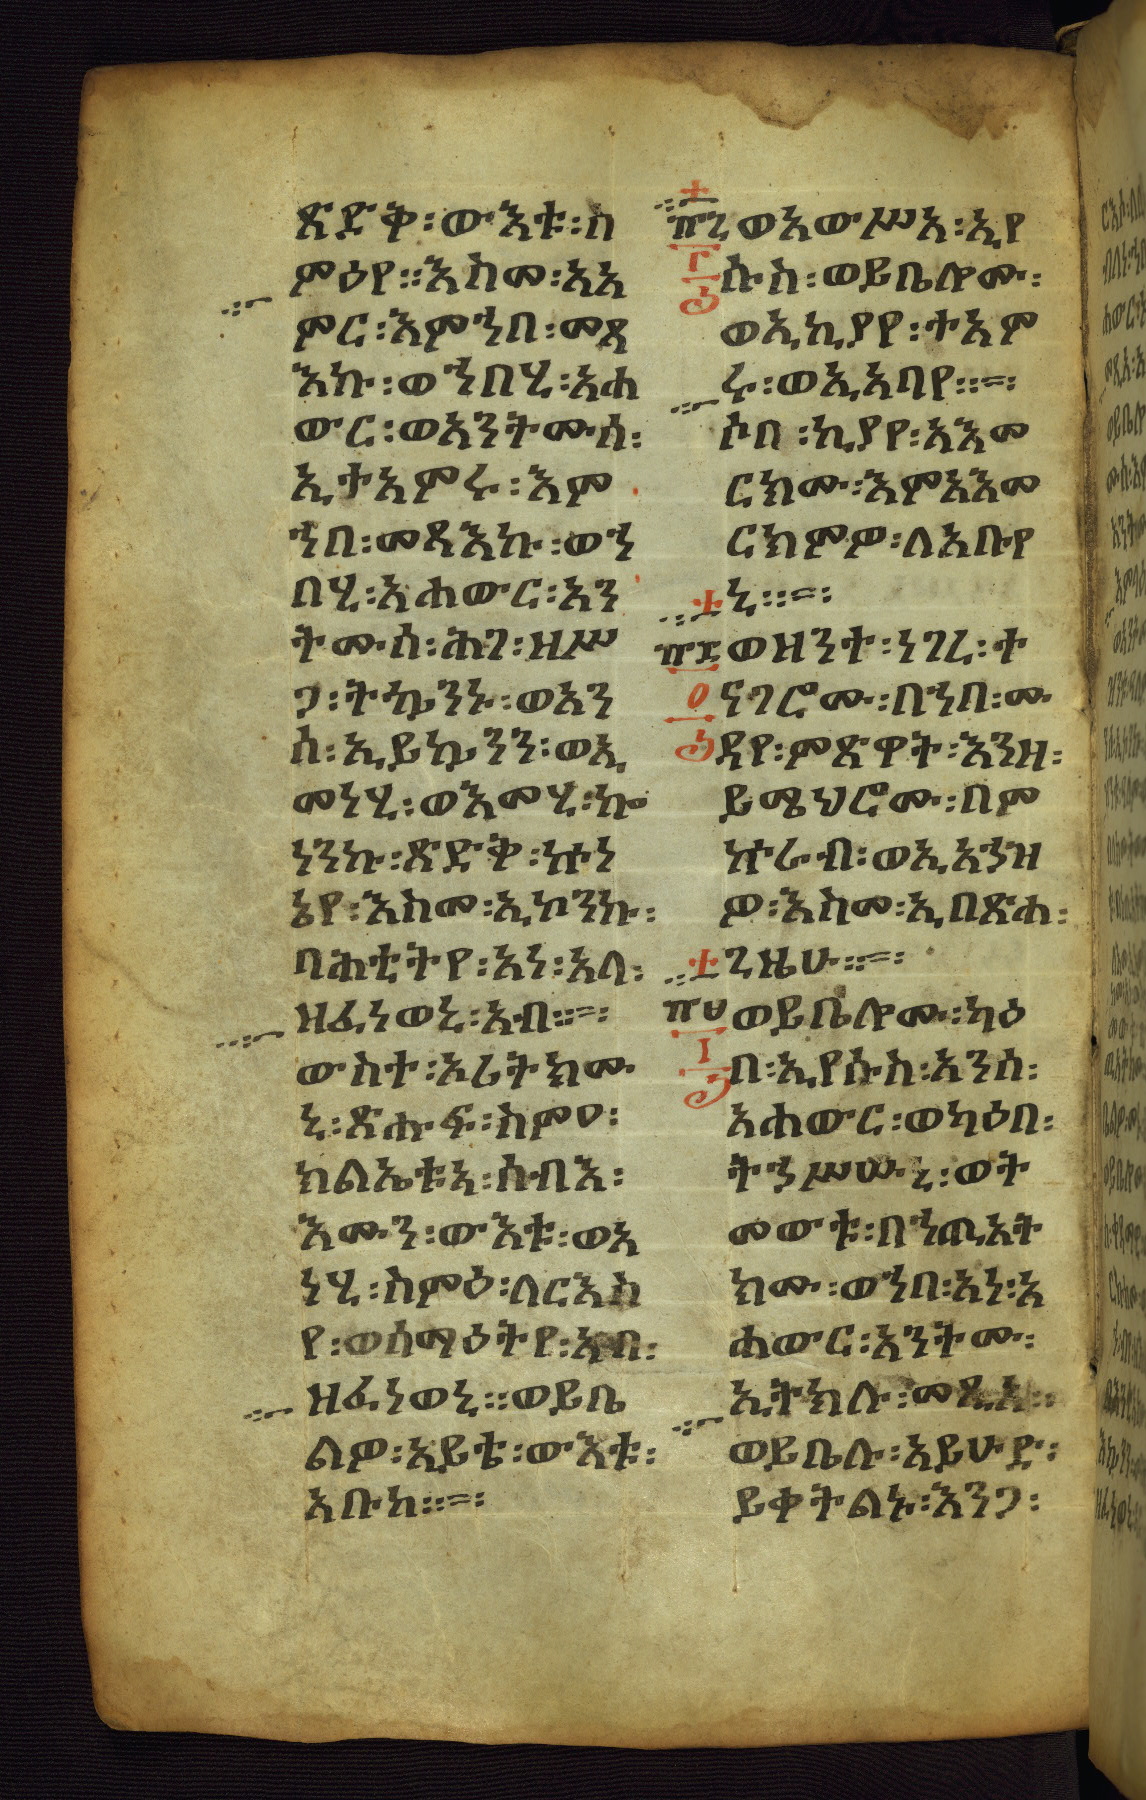 ጽድቅ፡ውእቱ፡ስ
ምዕየ፡፡እስመ፡አአ
ምር፡እምኀበ፡መጻ
እኩ፡ወኀበሂ፡አሐ
ውር፡ወአንትሙሰ፡
ኢተአምሩ፡እም
ኀበ፡መጻእኩ፡ወኀ
በሂ፡አሐውር፡አን
ትሙሰ፡ሕገ፡ዘሥ
ጋ፡ትኴንኑ፡ወአን
ሰ፡ኢይኴንን፡ወኢ
መነሂ፡ወእመሂ፡ኰ
ነንኩ፡ጽድቅ፡ኵነ
ኔየ፡እስመ፡ኢኮንኩ፡
ባሕቲትየ፡አነ፡አላ፡
ዘፈነወኒ፡አብ፡፡=፡
ውስተ፡ኦሪትክሙ
ኒ፡ጽሑፍ፡ስምዐ፡
ክልኤቱ፡ሰብእ፡
እሙን፡ውእቱ፡ወአ
ነሂ፡ስምዕ፡ለርእስ
የ፡ወሰማዕትየ፡አብ፡
ዘፈነወኒ፡፡ወይቤ
ልዎ፡አይቴ፡ውእቱ፡
አቡከ፡፡=፡
፹ኀ ወአውሥአ፡ኢየ
ሱስ፡ወይቤሎሙ፡
ወኢኪያየ፡ተአም
ሩ፡ወኢአባየ፡፡=፡
ሶበ፡ኪያየ፡አእመ
ርክሙ፡እምአእመ
ርክምዎ፡ለአቡየ
ኒ፡፡=፡
፹፮ ወዘንተ፡ነገረ፡ተ
ናገሮሙ፡በኀበ፡ሙ
ዳየ፡ምጽዋት፡እንዘ፡
ይሜህሮሙ፡በም
ኵራብ፡ወኢአኀዝ
ዎ፡እስመ፡ኢበጽሐ፡
ጊዜሁ፡፡=፡
፹፱ ወይቤሎሙ፡ካዕ
በ፡ኢየሱስ፡አንሰ፡
አሐውር፡ወካዕበ፡
ትኀሥሡኒ፡ወት
መውቱ፡በኀጢአት
ክሙ፡ወኀበ፡አነ፡አ
ሐውር፡አንትሙ፡
ኢትክሉ፡መጺአ፡፡
ወይቤሉ፡አይሁድ፡
ይቀትልኑ፡እንጋ፡